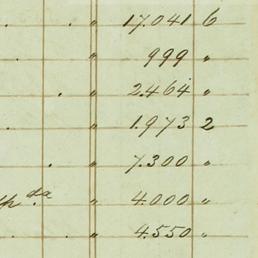 " 17.041 6
" 999 "
" 2.464 "
" 1.973 2
" 7.300 "
da " 4.000 "
" 4.550 "